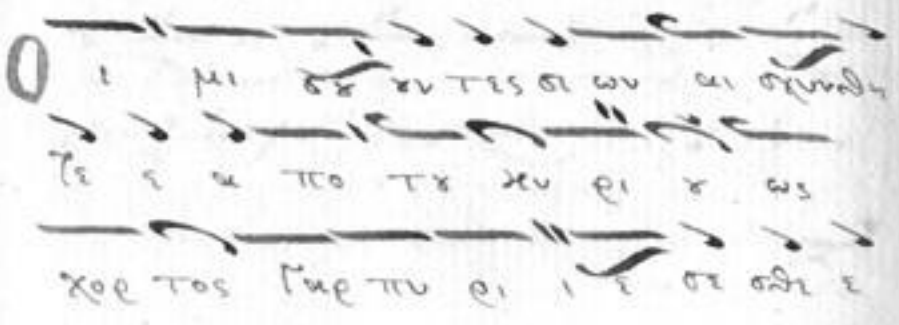 Ο ι μι σȣ ȣν τες σι ων αι σχυνθη
τε ε α πο τȣ κυ ρι ȣ ως
χορ τος γαρ πυ ρι ι ε σε σθε ε